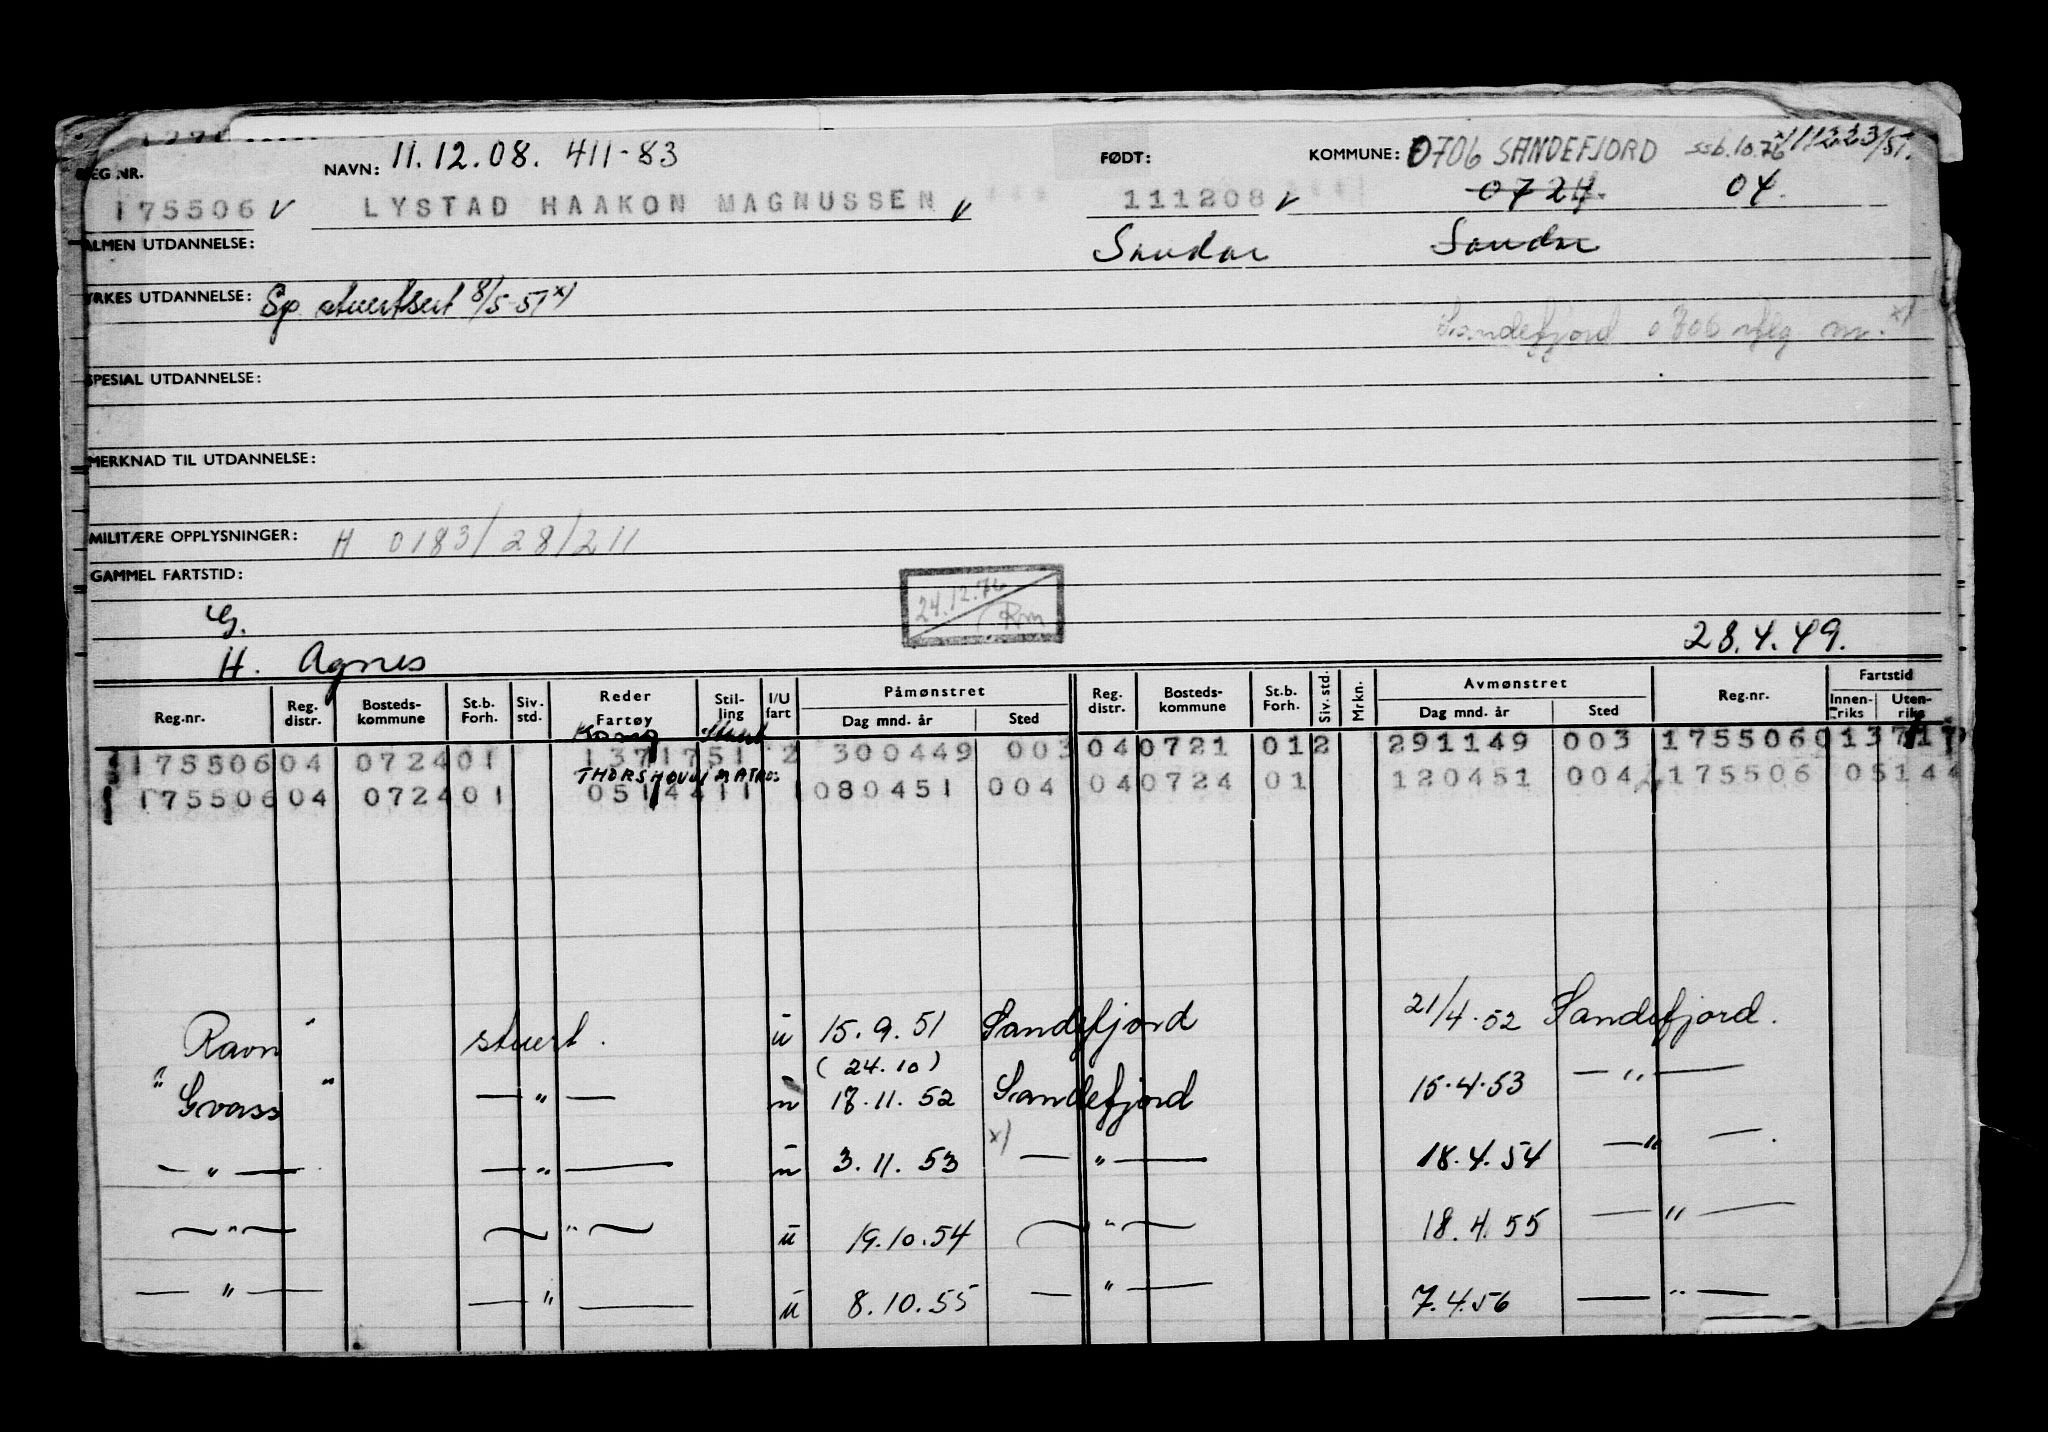 11.12.08. 411-83 0706 SANDEFJORD ssb.10.76 11223/51.
REG NR. NAVN: FØDT: KOMMUNE: 0724 04.
175506 V LYSTAD HAAKON MAGNUSSEN V 111208 V
ALMEN UTDANNELSE: Sandar Sandar
YRKES UTDANNELSE: Sp stuertsert 8/5-51 x)
Sandefjord 0706 iflg m. x)
SPESIAL UTDANNELSE:
MERKNAD TIL UTDANNELSE:
MILITÆRE OPPLYSNINGER: H 0183/28/211
GAMMEL FARTSTID:
24.12.76 Rm
G.
H. Agnes 28.4.49.
Reg.nr. Reg. distr. Bosteds-kommune St.b. Forh. Siv. std. Reder Fartøy Stil-ling I/U fart Påmønstret Dag mnd. år Sted Reg. distr. Bosteds-kommune St.b. Forh. Siv. std. Mrkn. Avmønstret Dag mnd. år Sted Reg.nr. Fartstid Innen-riks Uten-riks
Stuert
175506 04 0724 01 1371751 2 300449 003 04 0721 01 2 291149 003 175506 013717
THORSHOVDI MATROS
175506 04 0724 01 0514411 1 080451 004 04 0724 01 120451 004 175506 05144
Ravn " stuert. u 15.9.51 Sandefjord 21/4-52 Sandefjord.
(24.10)
" Gvass " — " — u 18.11.52 Sandefjord 15.4.53 — " —
— " — — " — u 3.11.53 x) — " — 18.4.54 — " —.
— " — — " — u 19.10.54 — " — 18.4.55 — " —
— " — — " — u 8.10.55 — " — 7.4.56 — " —